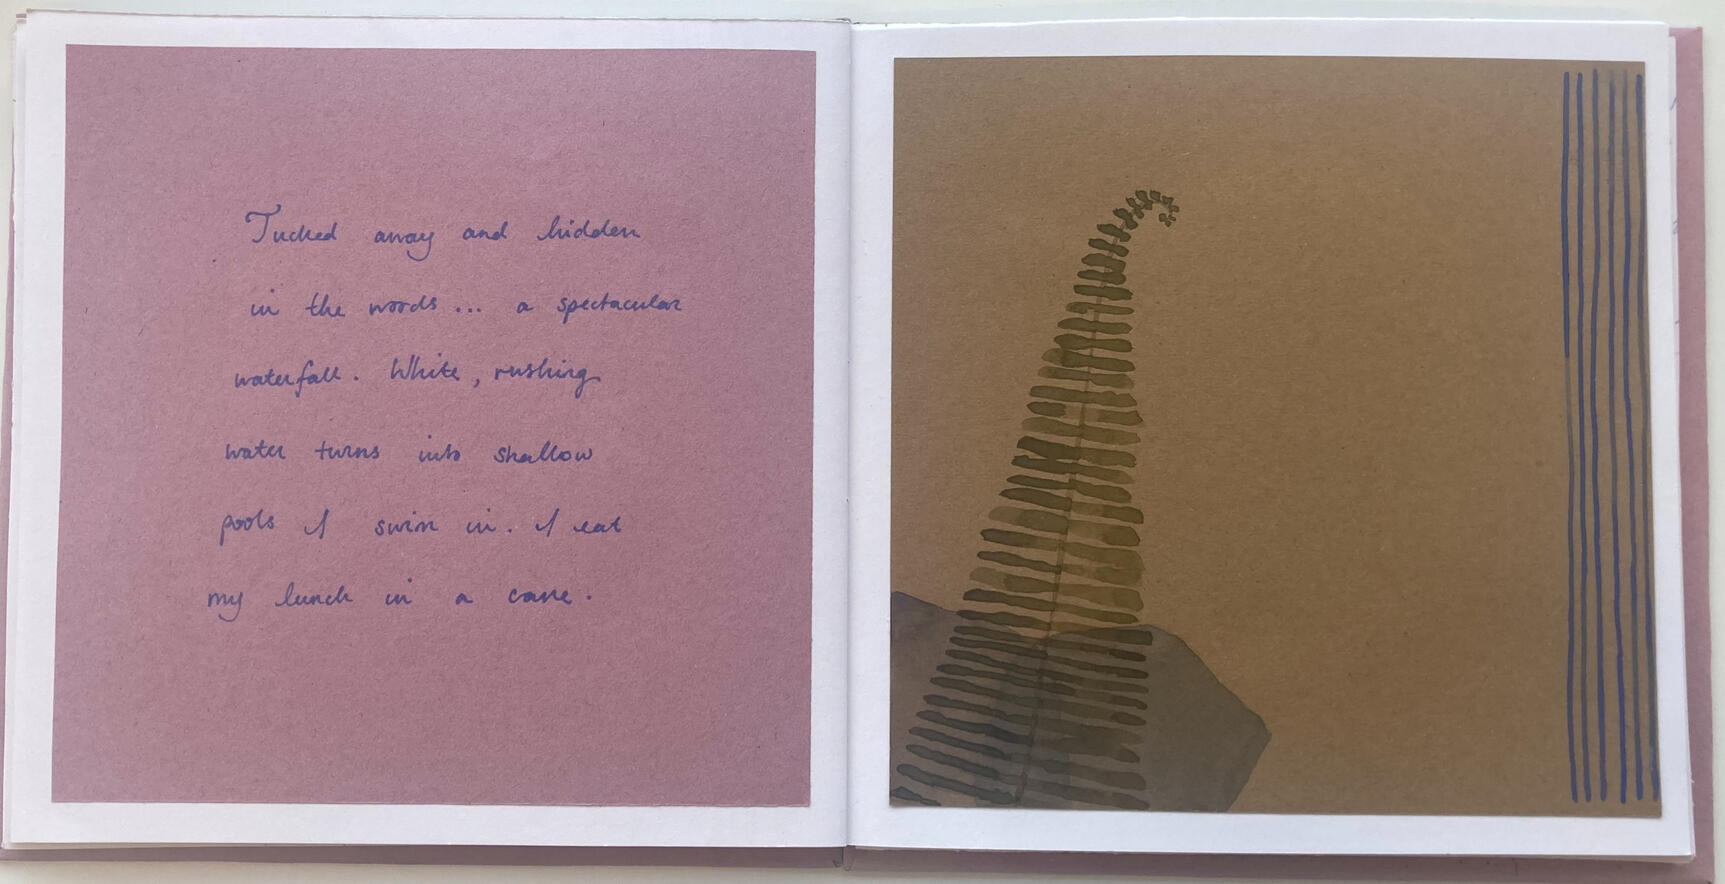 Tucked away and hidden
in the woods... a spectacular
waterfall. White, rushing
water turns into shallow
pools I swim in. I eat
my lunch in a cave.